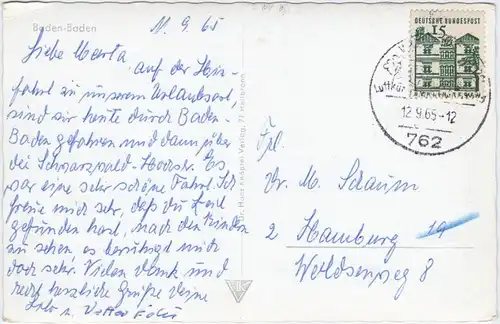 11.9.65
Baden-Baden
Liebe Marta,
auf der Hin-
fahrt zu unserem Urlaubsort,
sind wir heute durch Baden-
Baden gefahren und dann über
die Schwarzwald-Hochstr. Es
war eine sehr schöne Fahrt. Ich
freue mich sehr, daß du Zeit
gefunden hast, nach den Kindern
zu sehen es beruhigt mich
doch sehr. Vielen Dank und
recht herzliche Grüße deine
u. Vetter
Dr. Hans Knöpfel Verlag, 71 Heilbronn
DEUTSCHE BUNDESPOST
15
Luftkur
12.9.65-12
762
Frl.
Dr. M. Schaum
2 Hamburg 19
Woldsenweg 8